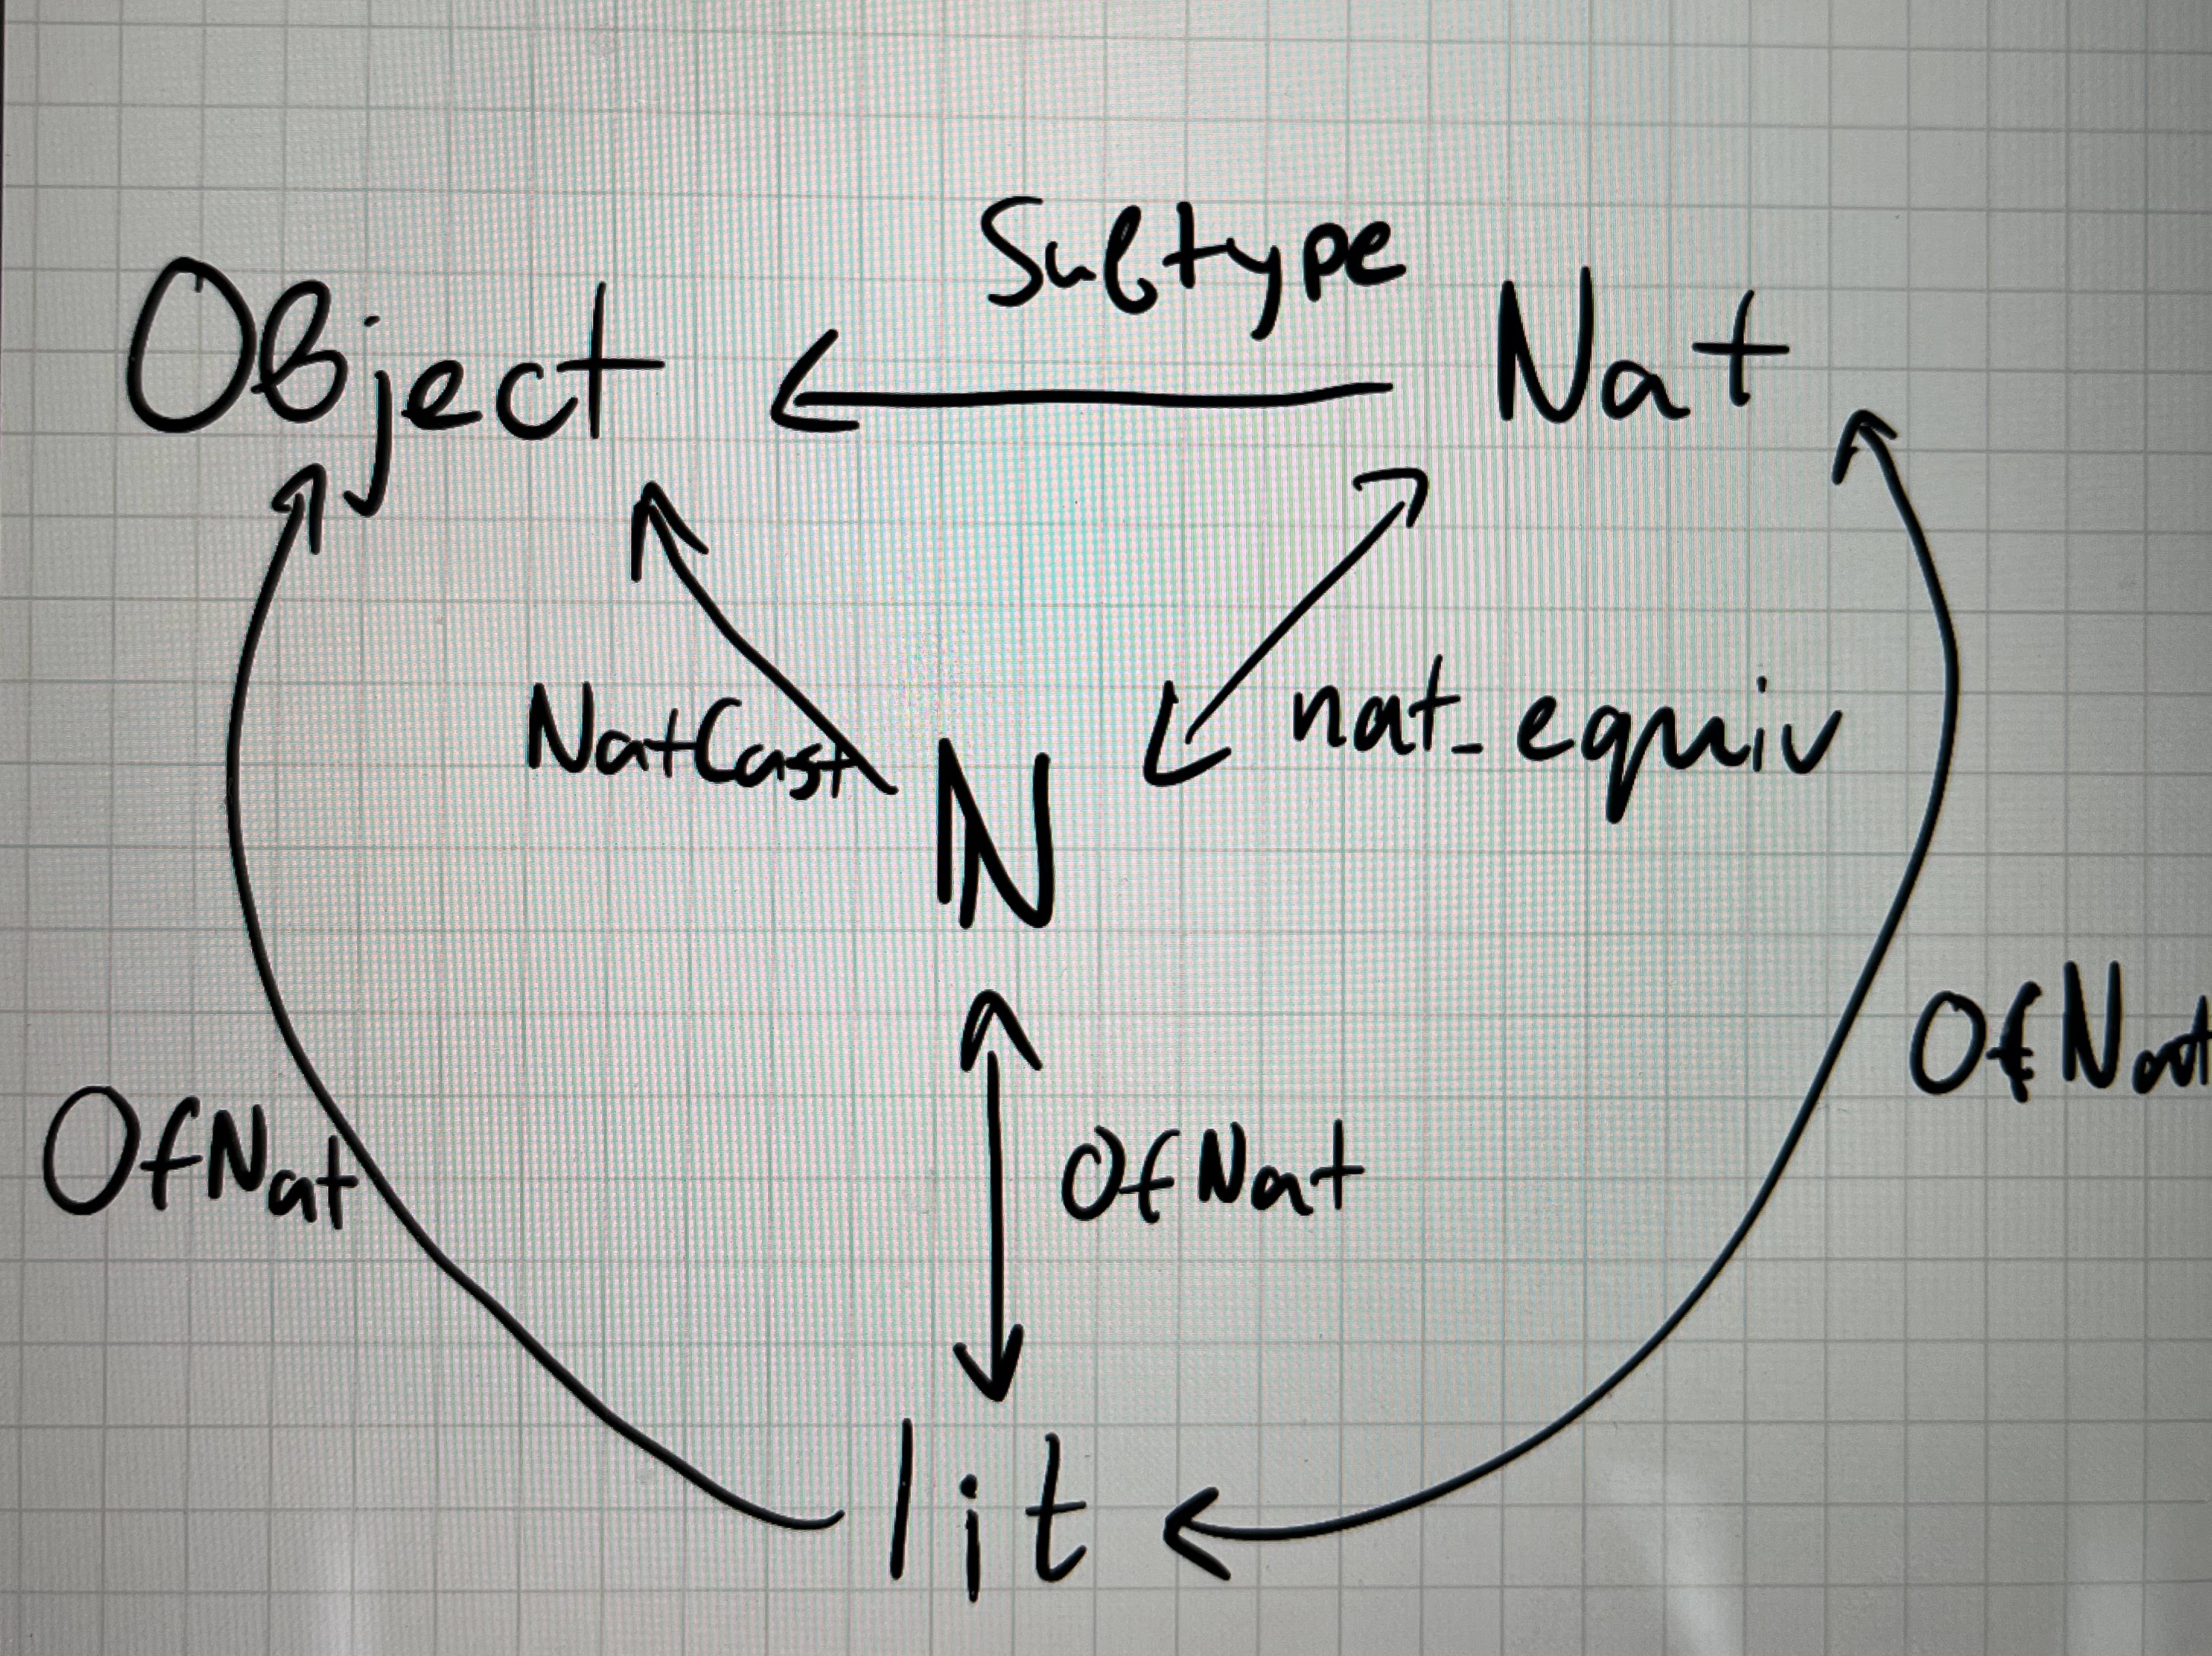 Subtype
Object
Nat
NatCast
nat_equiv
ℕ
OfNat
OfNat
OfNat
lit